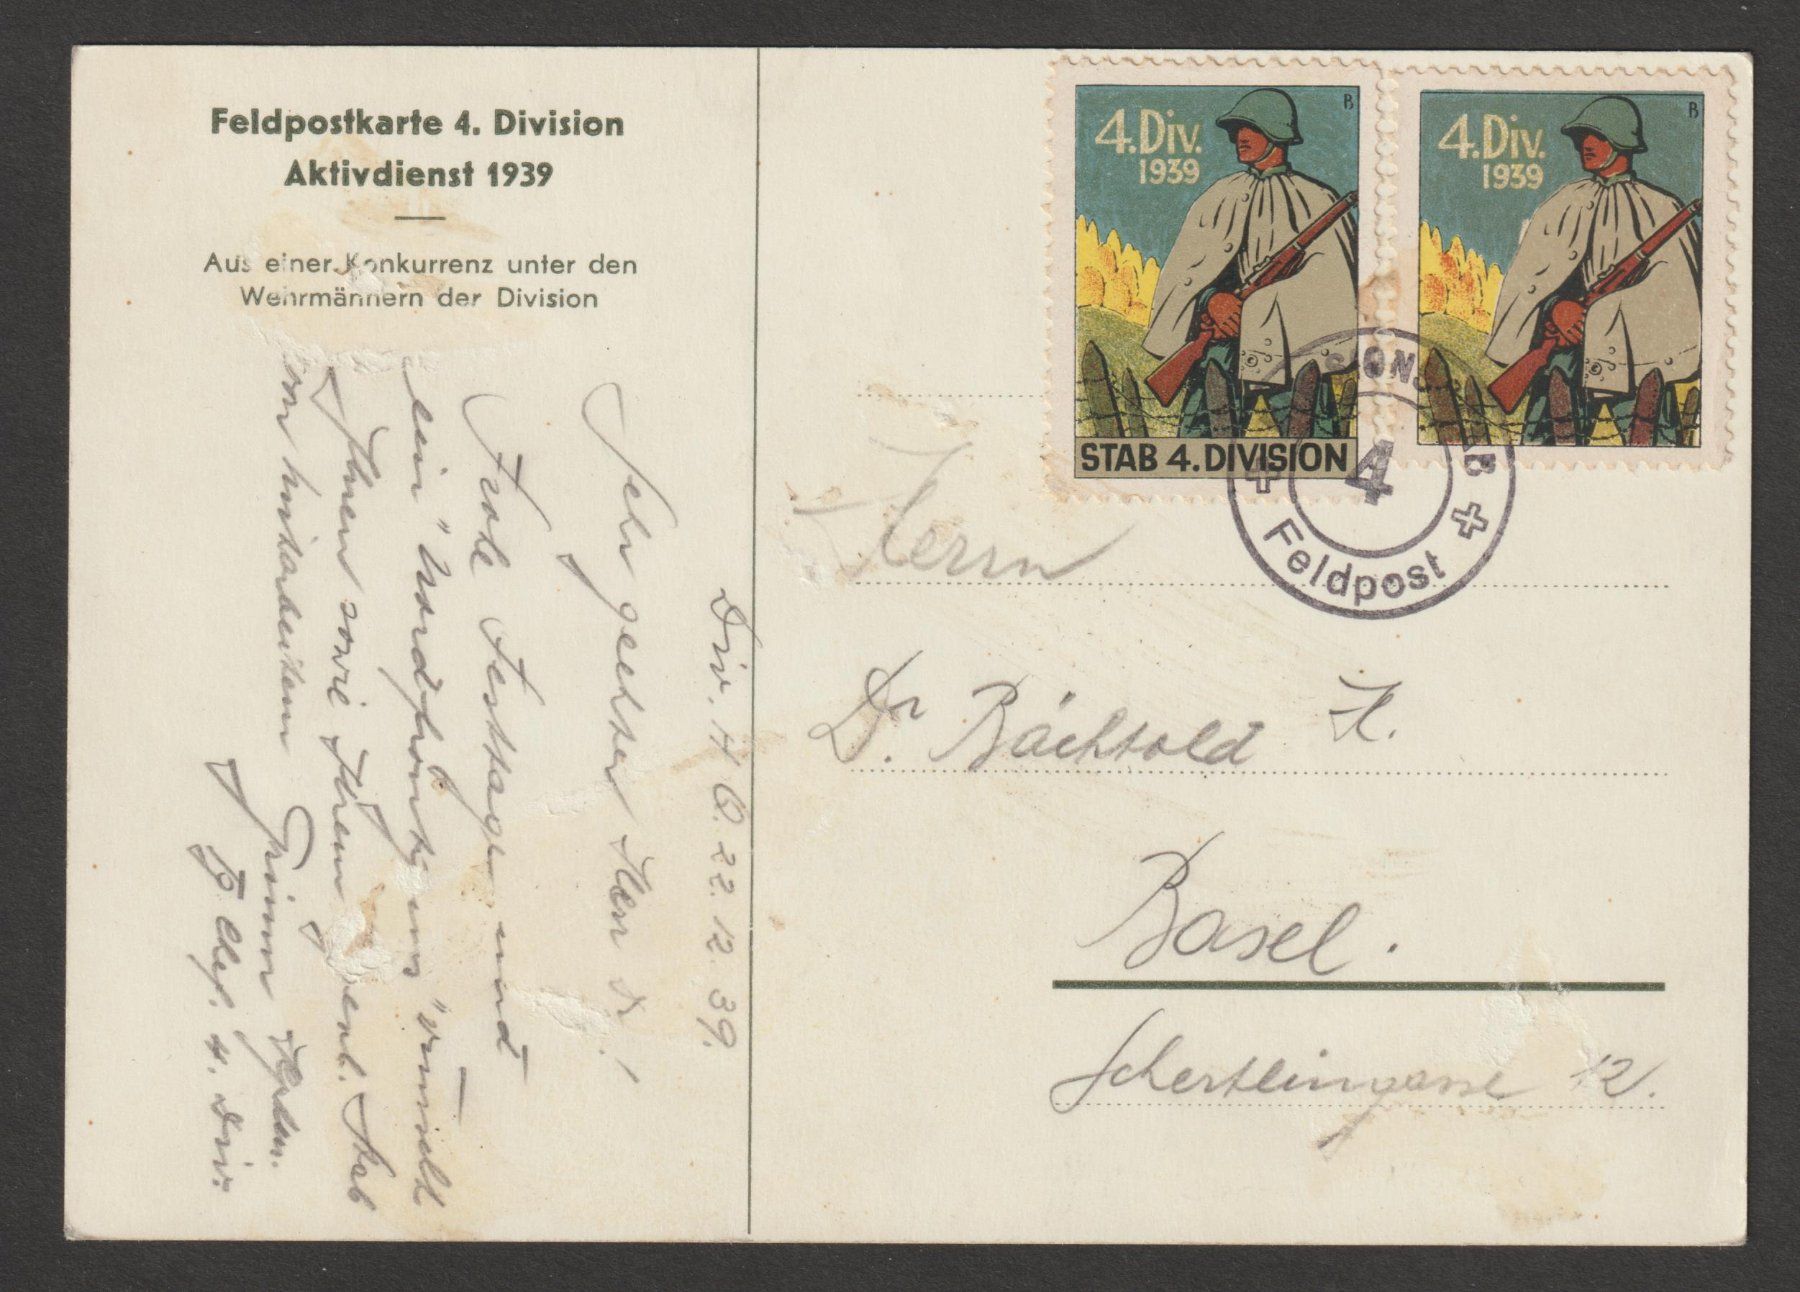 Feldpostkarte 4. Division
Aktivdienst 1939
Aus einer Konkurrenz unter den
Wehrmännern der Division
Div. H Q. 22.12.39.
Sehr geehrter Herr Dr!
Frohe Festtage und
ein "Nordfrontig
wünscht
Ihnen sowie Ihrem gent. Stab
Ihr
4. Div.
4. Div.
1939
B
STAB 4. DIVISION
4. Div.
1939
B
4
Feldpost
Herrn
Dr. Bächtold H.
Basel.
Schertlingasse 12.